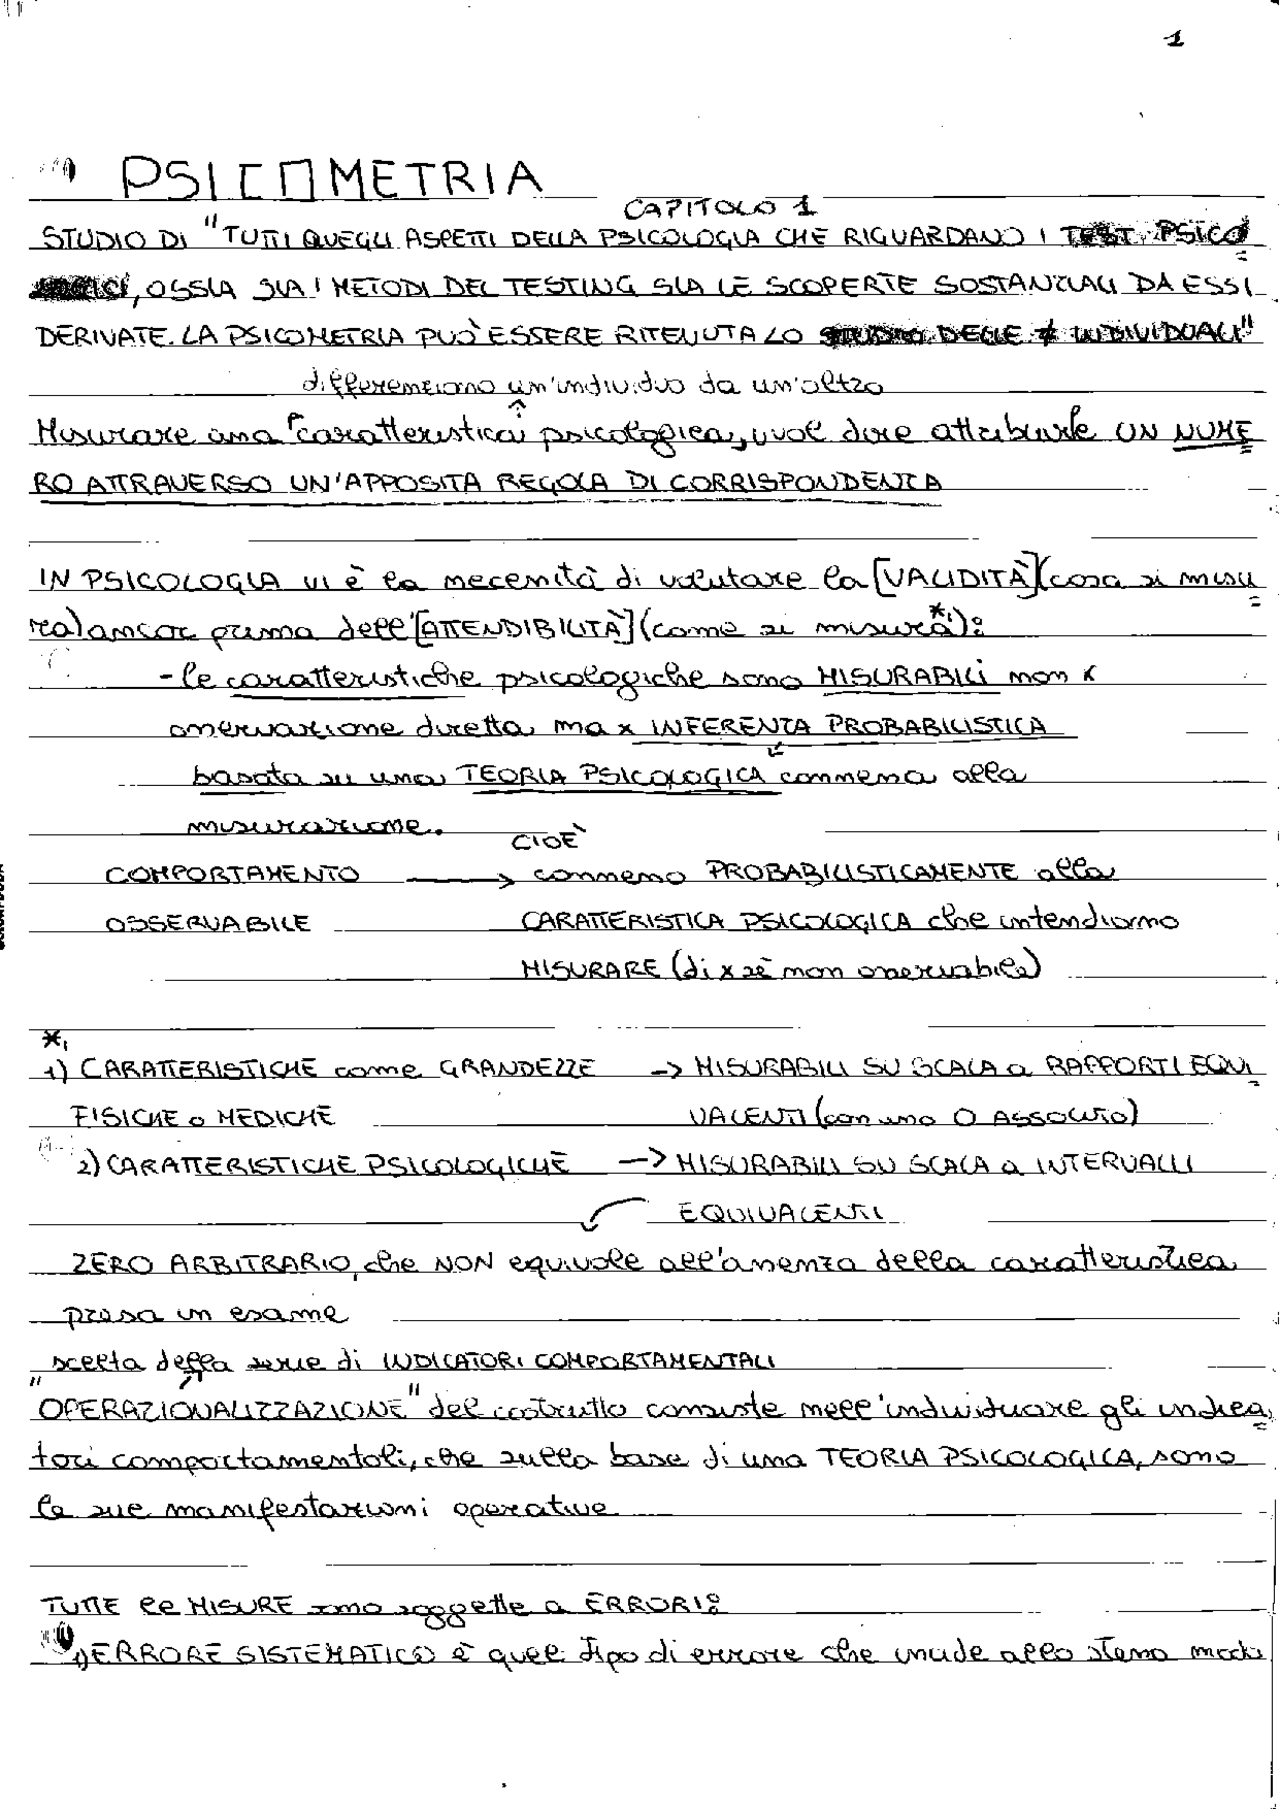 1
PSICOMETRIA
CAPITOLO 1
STUDIO DI "TUTTI QUEGLI ASPETTI DELLA PSICOLOGIA CHE RIGUARDANO I TEST PSICO
LOGICI, OSSIA SIA I METODI DEL TESTING SIA LE SCOPERTE SOSTANZIALI DA ESSI
DERIVATE. LA PSICOMETRIA PUÒ ESSERE RITENUTA LO STUDIO DELLE ≠ INDIVIDUALI"
differenziano un'individuo da un'altro
Misurare una caratteristica psicologica, vuol dire attribuirle UN NUME
RO ATTRAVERSO UN'APPOSITA REGOLA DI CORRISPONDENZA
IN PSICOLOGIA vi è la necessità di valutare la [VALIDITÀ] (cosa si misu
ra) ancor prima dell'[ATTENDIBILITÀ] (come si misura *1):
- le caratteristiche psicologiche sono MISURABILI non x
osservazione diretta, ma x INFERENZA PROBABILISTICA
basata su una TEORIA PSICOLOGICA connessa alla
misurazione.
CIOÈ
COMPORTAMENTO → connesso PROBABILISTICAMENTE alla
OSSERVABILE CARATTERISTICA PSICOLOGICA che intendiamo
MISURARE (di x sè non osservabile)
*1
1) CARATTERISTICHE come GRANDEZZE -> MISURABILI SU SCALA a RAPPORTI EQUI
FISICHE o MEDICHE VALENTI (con uno 0 ASSOLUTO)
2) CARATTERISTICHE PSICOLOGICHE -> MISURABILI SU SCALA a INTERVALLI
EQUIVALENTI
ZERO ARBITRARIO, che NON equivale all'assenza della caratteristica
presa in esame
scelta della serie di INDICATORI COMPORTAMENTALI
"OPERAZIONALIZZAZIONE" del costrutto consiste nell'individuare gli indica
tori comportamentali, che sulla base di una TEORIA PSICOLOGICA, sono
le sue manifestazioni operative
TUTTE le MISURE sono soggette a ERRORI:
1) ERRORE SISTEMATICO è quel tipo di errore che incide allo stesso modo